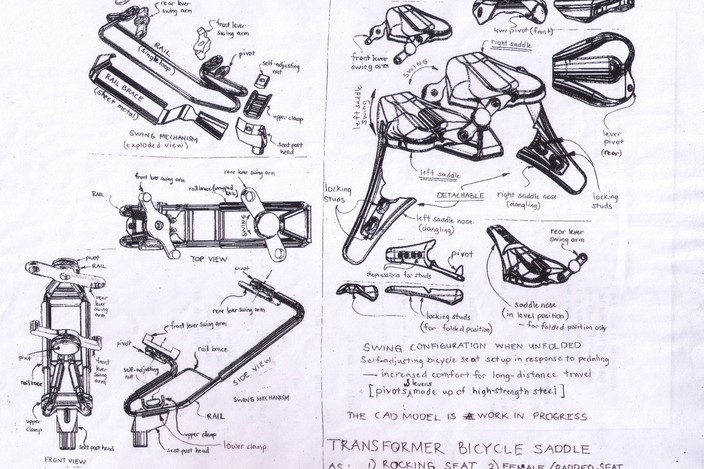 rear lever
swing arm
front lever
swing arm
RAIL
(single loop)
pivot
self-adjusting
nut
RAIL BRACE
(sheet metal)
upper clamp
seat post
head
SWING MECHANISM
(exploded view)
front lever swing arm
rear lever swing arm
RAIL
SWING
TOP VIEW
pivot
RAIL
rear
lever
swing
arm
pivot
front
lever
swing
arm
rail brace
upper
clamp
seat post head
FRONT VIEW
pivot
rear lever swing arm
front lever swing arm
pivot
rail brace
self-adjusting
nut
SIDE VIEW
SWING MECHANISM
RAIL
upper clamp
lower clamp
seat post head
lever pivot (front)
front lever
swing arm
right saddle
SWING
left saddle
swing
lever
pivot
(rear)
left saddle
locking
studs
DETACHABLE
right saddle nose
(dangling)
locking
studs
left saddle nose
(dangling)
pivot
depressions for studs
rear lever
swing arm
locking studs
(for folded position)
saddle nose
(in level position)
- for folded position only
SWING CONFIGURATION WHEN UNFOLDED
Self-adjusting bicycle seat setup in response to pedaling
— increased comfort for long-distance travel
[pivots, levers made up of high-strength steel]
THE CAD MODEL IS WORK IN PROGRESS
TRANSFORMER BICYCLE SADDLE
AS: 1) ROCKING SEAT 2) FEMALE/PADDED SEAT